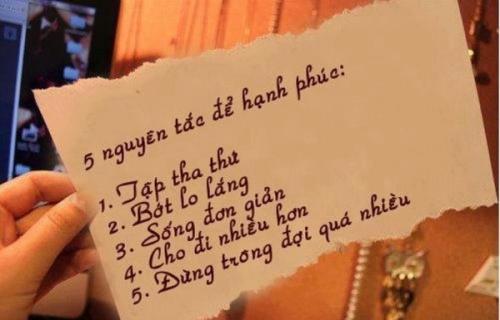 5 nguyên tắc để hạnh phúc:
1. Tập tha thứ
2. Bớt lo lắng
3. Sống đơn giản
4. Cho đi nhiều hơn
5. Đừng trong đợi quá nhiều